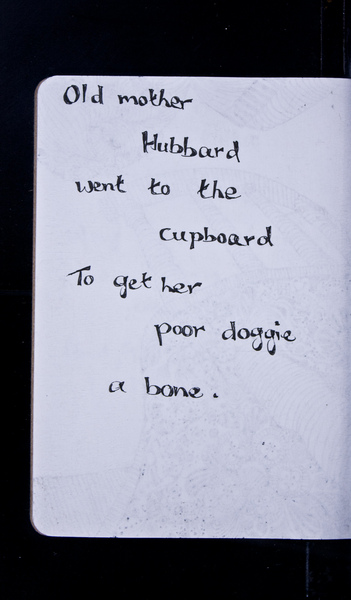 Old mother
Hubbard
went to the
cupboard
To get her
poor doggie
a bone.